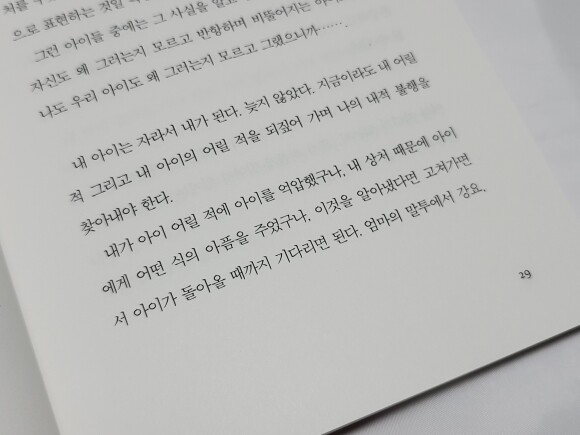 으로 표현하는 것일
그런 아이들 중에는 그 사실을
자신도 왜 그러는지 모르고 반항하며 비뚤어지는
나도 우리 아이도 왜 그러는지 모르고 그랬으니까……
내 아이는 자라서 내가 된다. 늦지 않았다. 지금이라도 내 어릴
적 그리고 내 아이의 어릴 적을 되짚어 가며 나의 내적 불행을
찾아내야 한다.
내가 아이 어릴 적에 아이를 억압했구나, 내 상처 때문에 아이
에게 어떤 식의 아픔을 주었구나, 이것을 알아냈다면 고쳐가면
서 아이가 돌아올 때까지 기다리면 된다. 엄마의 말투에서 강요,
29